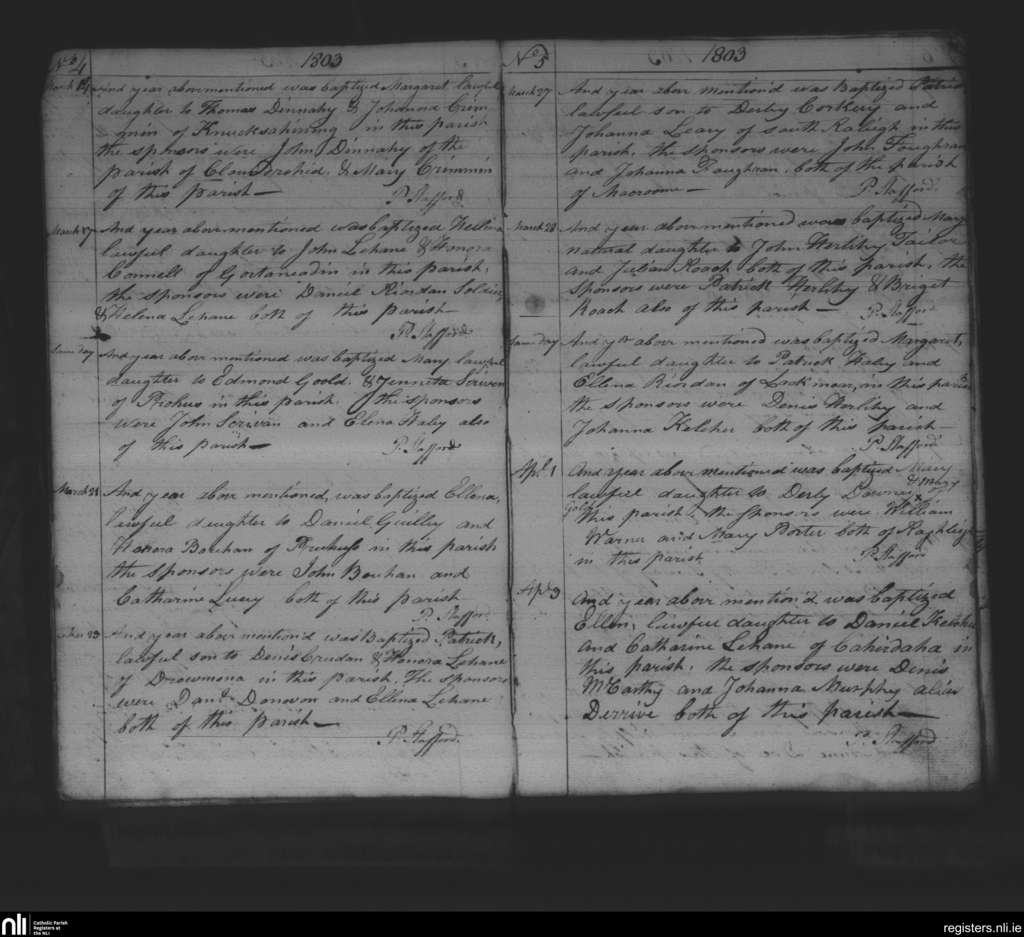 No 4 1803
March 17 And year abovementioned was baptized Margaret lawful
daughter to Thomas Dinnahy & Johanna Crim
min of Knucksahining in this parish
the sponsors were John Dinnahy of the
parish of ClounDrohid, & Mary Crimmin
of this Parish—
P. Stafford
March 17 And year abovementioned was baptized Hellena
lawful daughter to John Lehane & Honora
Connell of Gortaneadin in this parish,
the sponsors were Daniel Riordan Soldier
& Helena Lehane both of this parish—
P. Stafford
Same Day And year above mentioned was baptized Mary lawful
daughter to Edmond Goold & Jenneta Scriven
of Prohus in this parish. The sponsors
were John Scrivan and Elena Haley also
of this parish—
P. Stafford
March 21 And year above mentioned, was baptized Ellena,
lawful daughter to Daniel Guilley and
Hanora Bouhan of Prohuss in this parish
the sponsors were John Bouhan and
Catharine Lucey both of this parish
P. Stafford
23 And year above mention'd was Baptized Patrick,
lawful son to Denis Crudan & Honora Lehane
of Drowmona in this Parish. The sponsors
were Danl. Donovon and Ellena Lehane
both of this parish—
P. Stafford
No 5 1803
March 27 And year above mention'd was Baptized Patrick
lawful son to Derby Corkery and
Johanna Leary of south Raleigh in this
parish. the sponsors were John Foughran
and Johanna Roughran, both of the parish
of Macroome—
P. Stafford
March 28 And year abovementioned was baptized Mary
natural daughter to John Herlihy Tailor
and Julian Roach both of this parish, the
sponsors were Patrick Herlihy & Briget
Roach also of this parish—
P. Stafford
Same Day And yr above mentioned was baptized Margaret,
lawful daughter to Patrick Haley and
Ellena Riordan of Lackmon, in this parish
the sponsors were Denis Herlihy and
Johanna Kelcher both of this parish—
P. Stafford
Apl. 1 And year above mentioned was baptized Mary
lawful daughter to Derby Downey & Mary of
this parish. the sponsors were William
Warner and Mary Porter both of Raghleigh
in this parish
P. Stafford
Apl 3 And year above mention'd was baptized
Ellen, lawful daughter to Daniel Kelcher
and Catharine Lehane of Cahirdaha in
this parish, the sponsors were Denis
McCarthy and Johanna Murphy alias
Derrive both of this parish—
P. Stafford
nli Catholic Parish
Registers at
the NLI
registers.nli.ie